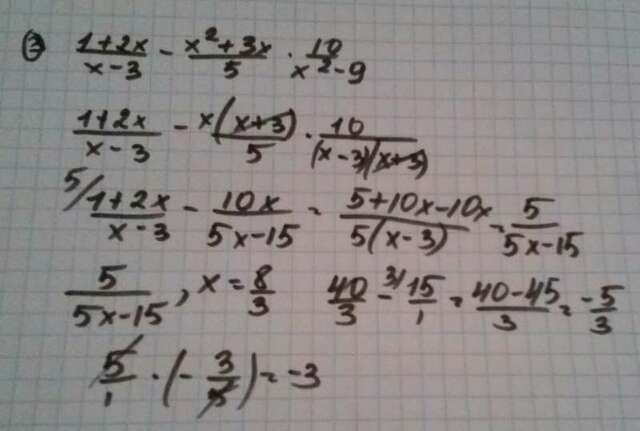 ③ (1+2x)/(x-3) - (x²+3x)/5 · 10/(x²-9)
(1+2x)/(x-3) - x(x+3)/5 · 10/((x-3)(x+3))
5/ (1+2x)/(x-3) - 10x/(5x-15) = (5+10x-10x)/(5(x-3)) = 5/(5x-15)
5/(5x-15), x = 8/3   40/3 - 3/ 15/1 = (40-45)/3 = -5/3
5/1 · (-3/5) = -3